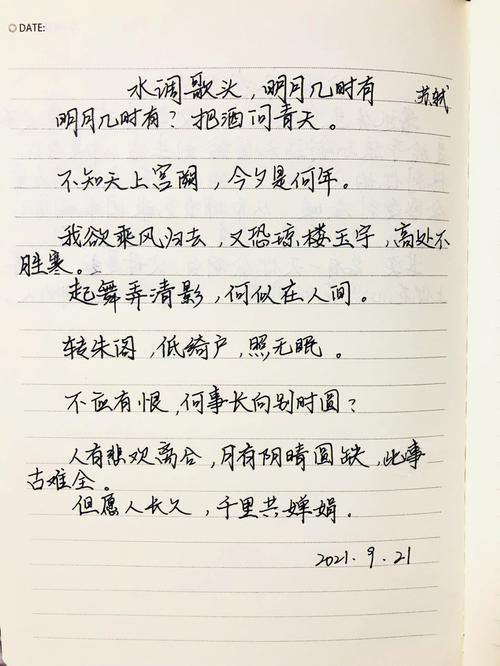 DATE:
水调歌头，明月几时有 苏轼
明月几时有？把酒问青天。
不知天上宫阙，今夕是何年。
我欲乘风归去，又恐琼楼玉宇，高处不
胜寒。
起舞弄清影，何似在人间。
转朱阁，低绮户，照无眠。
不应有恨，何事长向别时圆？
人有悲欢离合，月有阴晴圆缺，此事
古难全。
但愿人长久，千里共婵娟．
2021.9.21